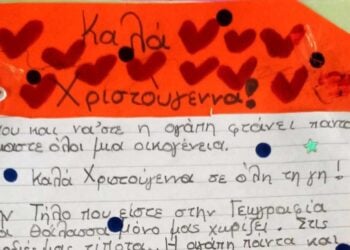 Καλά
Χριστούγεννα!
που και να'στε η αγάπη φτάνει παντού
μαστε όλοι μια οικογένεια.
Καλά Χριστούγεννα σε όλη τη γη!
ην Τήλο που είστε στην Γεωγραφία
θάλασσα μόνο μας χωρίζει. Στις
τίποτα. Η αγάπη παντα και